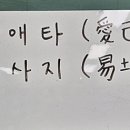 애타 (愛
사지 (易